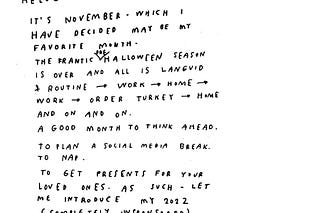 IT'S NOVEMBER. WHICH I
HAVE DECIDED MAY BE MY
FAVORITE MONTH.
THE FRANTIC HALLOWEEN SEASON
IS OVER AND ALL IS LANGUID
& ROUTINE → WORK → HOME →
WORK → ORDER TURKEY → HOME
AND ON AND ON.
A GOOD MONTH TO THINK AHEAD.
TO PLAN A SOCIAL MEDIA BREAK.
TO NAP.
TO GET PRESENTS FOR YOUR
LOVED ONES. AS SUCH - LET
ME INTRODUCE MY 2022
(COMPLETELY UNSPONSORED)